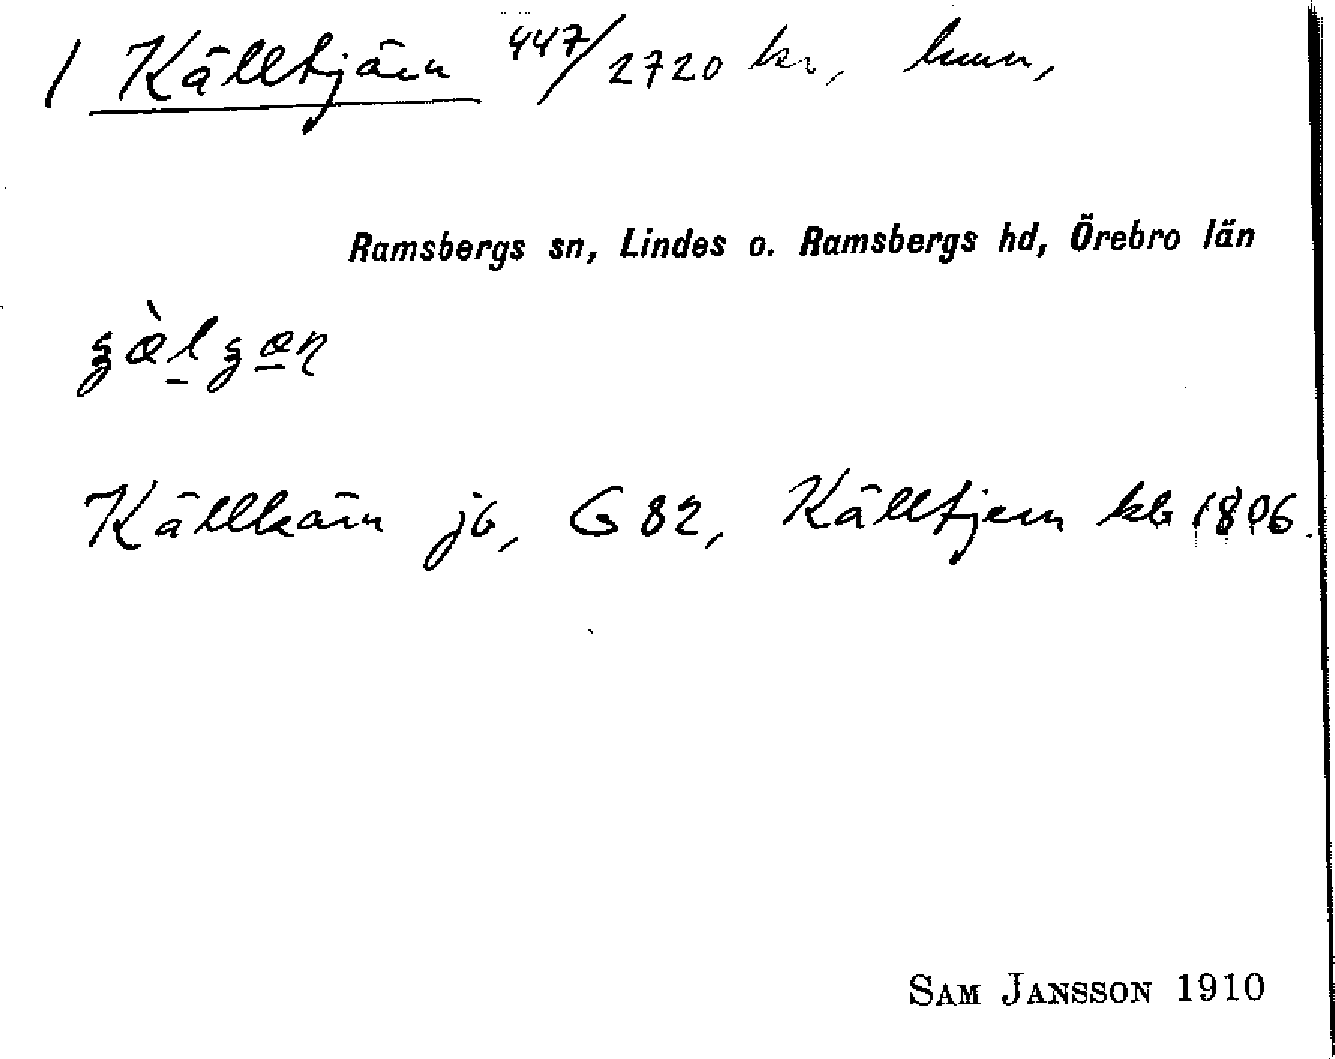 1 Källtjärn 447/2720 kr, hmn,
Ramsbergs sn, Lindes o. Ramsbergs hd, Örebro län
Källkärn jb, G 82, Källtjern kb 1806.
SAM JANSSON 1910